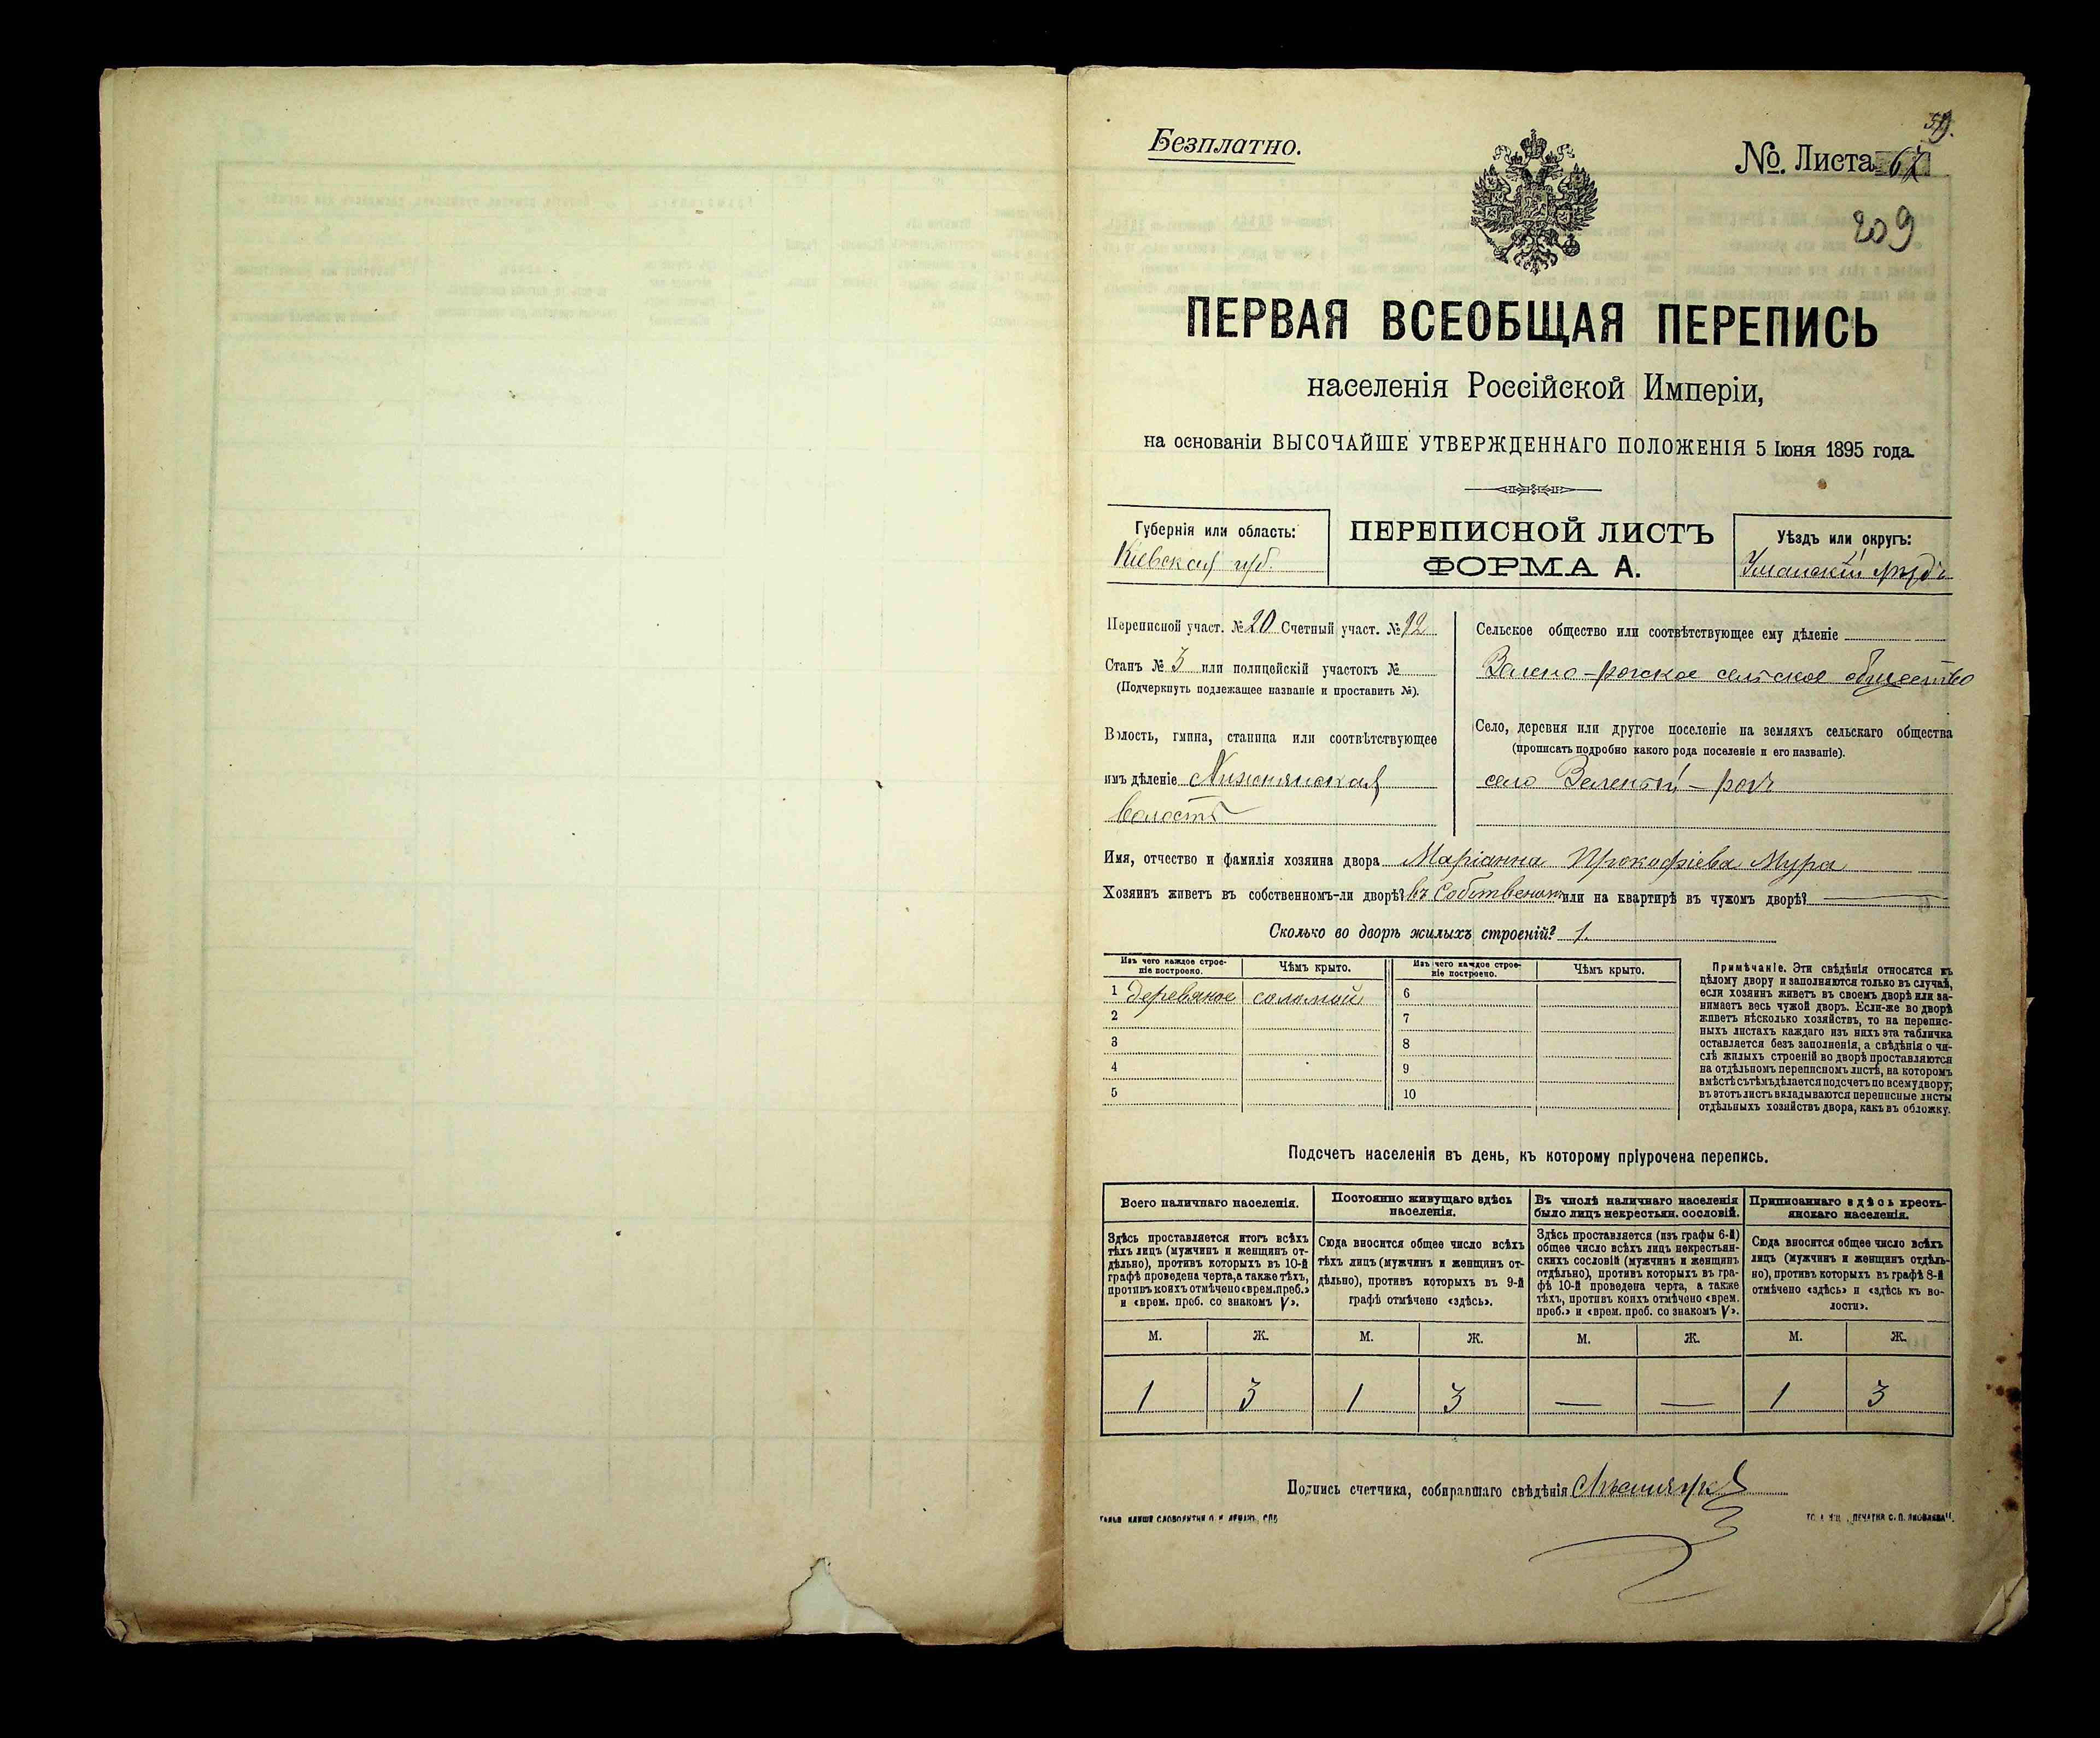 39.
Безплатно.
№. Листа 67
209
ПЕРВАЯ ВСЕОБЩАЯ ПЕРЕПИСЬ
населенія Россійской Имперіи,
на основаніи ВЫСОЧАЙШЕ УТВЕРЖДЕННАГО ПОЛОЖЕНІЯ 5 Іюня 1895 года.
Губернія или область:
Кіевская губ.
ПЕРЕПИСНОЙ ЛИСТЪ
ФОРМА А.
Уѣздъ или округъ:
Уманскій уѣздъ
Переписной участ. № 20 Счетный участ. № 12
Станъ № 3 или полицейскій участокъ №
(Подчеркнуть подлежащее названіе и проставить №).
Волость, гмина, станица или соотвѣтствующее
имъ дѣленіе
волость
Сельское общество или соотвѣтствующее ему дѣленіе
Зелено-рогское сельское общество
Село, деревня или другое поселеніе на земляхъ сельскаго общества
(прописать подробно какого рода поселеніе и его названіе).
село Зеленый-рогъ
Имя, отчество и фамилія хозяина двора Маріанна Прокофіева Мура
Хозяинъ живетъ въ собственномъ-ли дворѣ? въ собственомъ или на квартирѣ въ чужомъ дворѣ? —
Сколько во дворѣ жилыхъ строеній? 1.
Изъ чего каждое строе-
ніе построено.
Чѣмъ крыто.
Изъ чего каждое строе-
ніе построено.
Чѣмъ крыто.
1 деревяное соломой 6
2 7
3 8
4 9
5 10
Примѣчаніе. Эти свѣдѣнія относятся къ
цѣлому двору и заполняются только въ случаѣ,
если хозяинъ живетъ въ своемъ дворѣ или за-
нимаетъ весь чужой дворъ. Если-же во дворѣ
живетъ нѣсколько хозяйствъ, то на перепис-
ныхъ листахъ каждаго изъ нихъ эта табличка
оставляется безъ заполненія, а свѣдѣнія о чи-
слѣ жилыхъ строеній во дворѣ проставляются
на отдѣльномъ переписномъ листѣ, на которомъ
вмѣстѣ съ тѣмъ дѣлается подсчетъ по всему двору;
въ этотъ листъ вкладываются переписные листы
отдѣльныхъ хозяйствъ двора, какъ въ обложку.
Подсчетъ населенія въ день, къ которому пріурочена перепись.
Всего наличнаго населенія.
Постоянно живущаго здѣсь
населенія.
Въ числѣ наличнаго населенія
было лицъ некрестьян. сословій.
Приписаннаго здѣсь кресть-
янскаго населенія.
Здѣсь проставляется итогъ всѣхъ
тѣхъ лицъ (мужчинъ и женщинъ от-
дѣльно), противъ которыхъ въ 10-й
графѣ проведена черта, а также тѣхъ,
противъ коихъ отмѣчено «врем. преб.»
и «врем. преб. со знакомъ V».
Сюда вносится общее число всѣхъ
тѣхъ лицъ (мужчинъ и женщинъ от-
дѣльно), противъ которыхъ въ 9-й
графѣ отмѣчено «здѣсь».
Здѣсь проставляется (изъ графы 6-й)
общее число всѣхъ лицъ некрестьян-
скихъ сословій (мужчинъ и женщинъ
отдѣльно), противъ которыхъ въ гра-
фѣ 10-й проведена черта, а также
тѣхъ, противъ коихъ отмѣчено «врем.
преб.» и «врем. преб. со знакомъ V».
Сюда вносится общее число всѣхъ
лицъ (мужчинъ и женщинъ отдѣль-
но), противъ которыхъ въ графѣ 8-й
отмѣчено «здѣсь» и «здѣсь въ во-
лости».
М. Ж. М. Ж. М. Ж. М. Ж.
1 3 1 3 — — 1 3
Подпись счетчика, собиравшаго свѣдѣнія